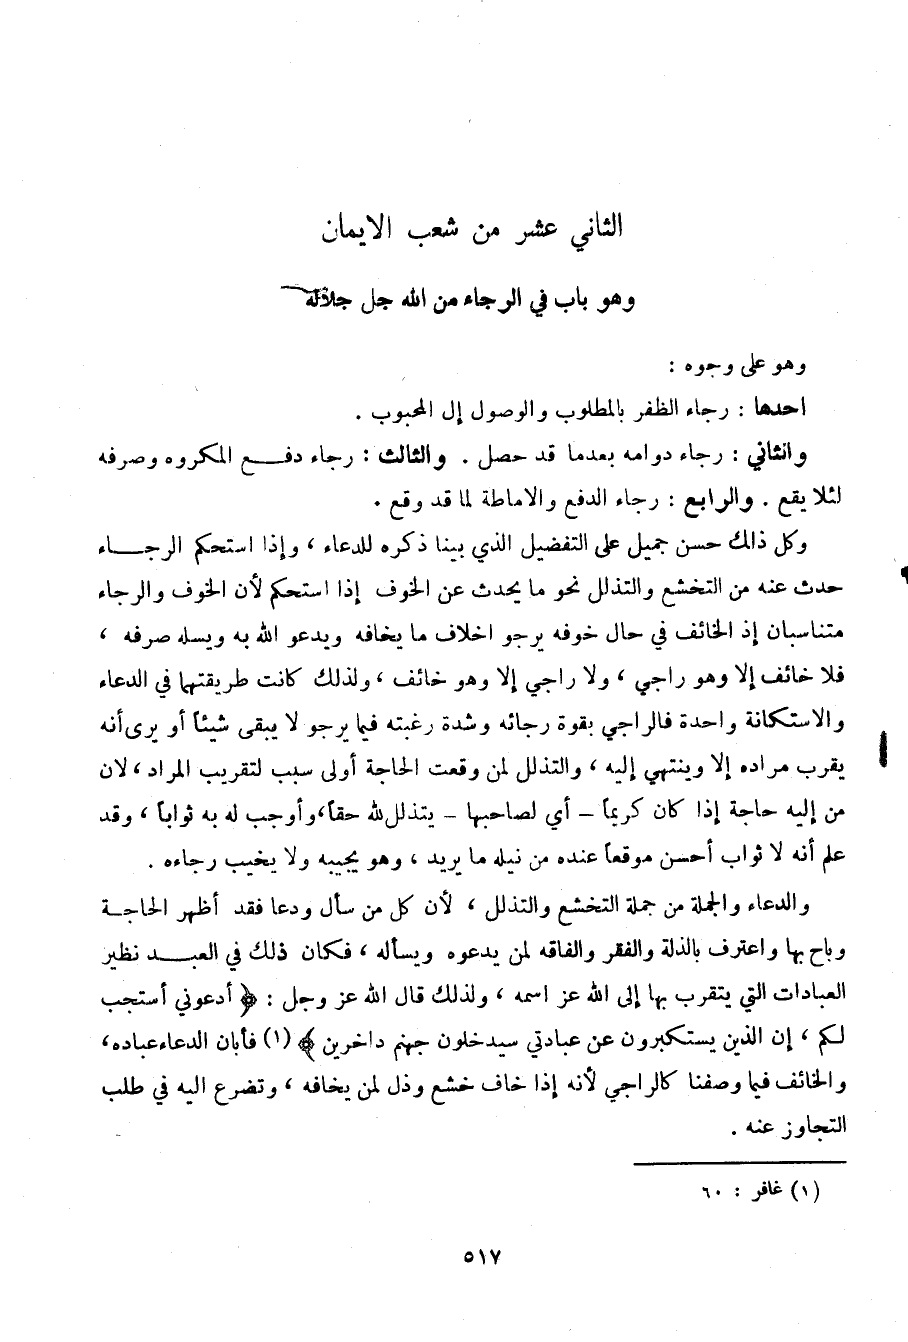 الثاني عشر من شعب الايمان
وهو باب في الرجاء من الله جل جلاله
وهو على وجوه :
احدها : رجاء الظفر بالمطلوب والوصول إل المحبوب .
وانثاني : رجاء دوامه بعدما قد حصل . والثالث : رجاء دفع المكروه وصرفه
لئلا يقع . والرابع : رجاء الدفع والاماطة لما قد وقع .
وكل ذلك حسن جميل على التفضيل الذي بينا ذكره للدعاء ، وإذا استحكم الرجاء
حدث عنه من التخشع والتذلل نحو ما يحدث عن الخوف إذا استحكم لأن الخوف والرجاء
متناسبان إذ الخائف في حال خوفه يرجو اخلاف ما يخافه ويدعو الله به ويسله صرفه ،
فلا خائف إلا وهو راجي ، ولا راجي إلا وهو خائف ، ولذلك كانت طريقتهما في الدعاء
والاستكانة واحدة فالراجي بقوة رجائه وشدة رغبته فيما يرجو لا يبقى شيئاً أو يرى أنه
يقرب مراده إلا وينتهي إليه ، والتذلل لمن وقعت الحاجة أولى سبب لتقريب المراد ، لان
من إليه حاجة إذا كان كريماً - أي لصاحبها - يتذلل لله حقاً، وأوجب له به ثواباً ، وقد
علم أنه لا ثواب أحسن موقعاً عنده من نيله ما يريد ، وهو يجيبه ولا يخيب رجاءه .
والدعاء والجملة من جملة التخشع والتذلل ، لأن كل من سأل ودعا فقد أظهر الحاجة
وباح بها واعترف بالذلة والفقر والفاقه لمن يدعوه ويسأله ، فكان ذلك في العبد نظير
العبادات التي يتقرب بها إلى الله عز اسمه ، ولذلك قال الله عز وجل : ﴿ أدعوني أستجب
لكم ، إن الذين يستكبرون عن عبادتي سيدخلون جهنم داخرين ﴾ (١) فأبان الدعاء عباده،
والخائف فيما وصفنا كالراجي لأنه إذا خاف خشع وذل لمن يخافه ، وتضرع اليه في طلب
التجاوز عنه .
(١) غافر : ٦٠
٥١٧